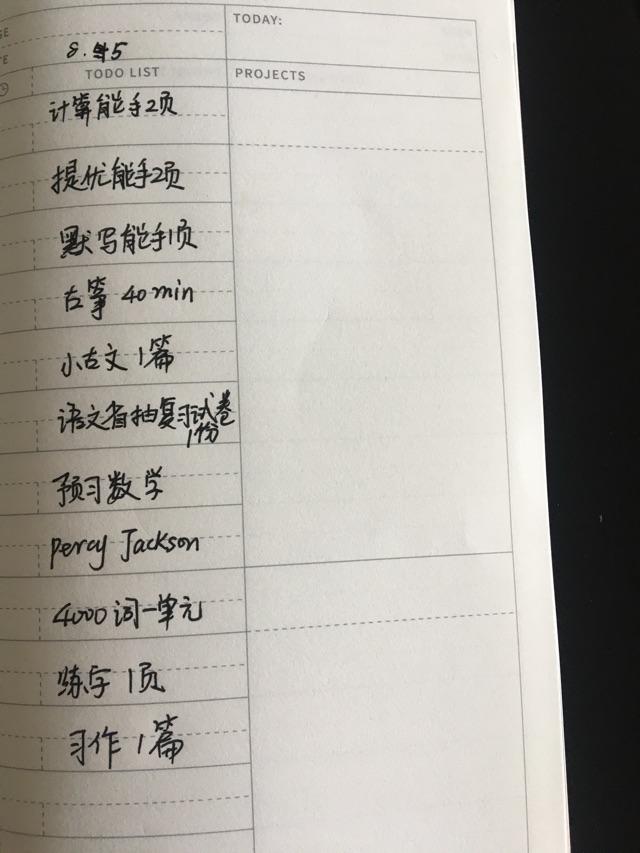 TODAY:
8.5
TODO LIST
PROJECTS
计算能手2页
提优能手2页
默写能手1页
古筝 40min
小古文 1篇
语文省抽复习试卷
1份
预习数学
Percy Jackson
4000词一单元
练字 1页
习作 1篇